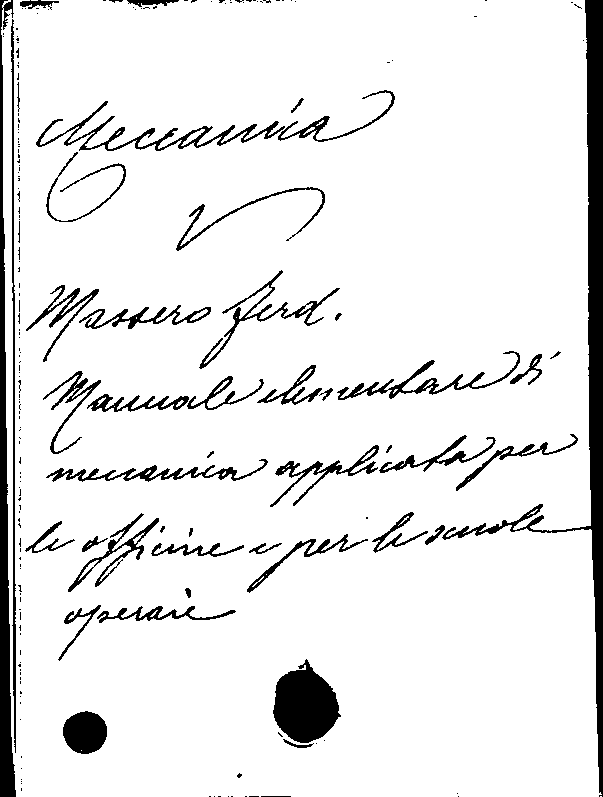 Meccanica
Massero Ferd.
Manuale elementare di
meccanica applicata per
le officine e per le scuole
operaie